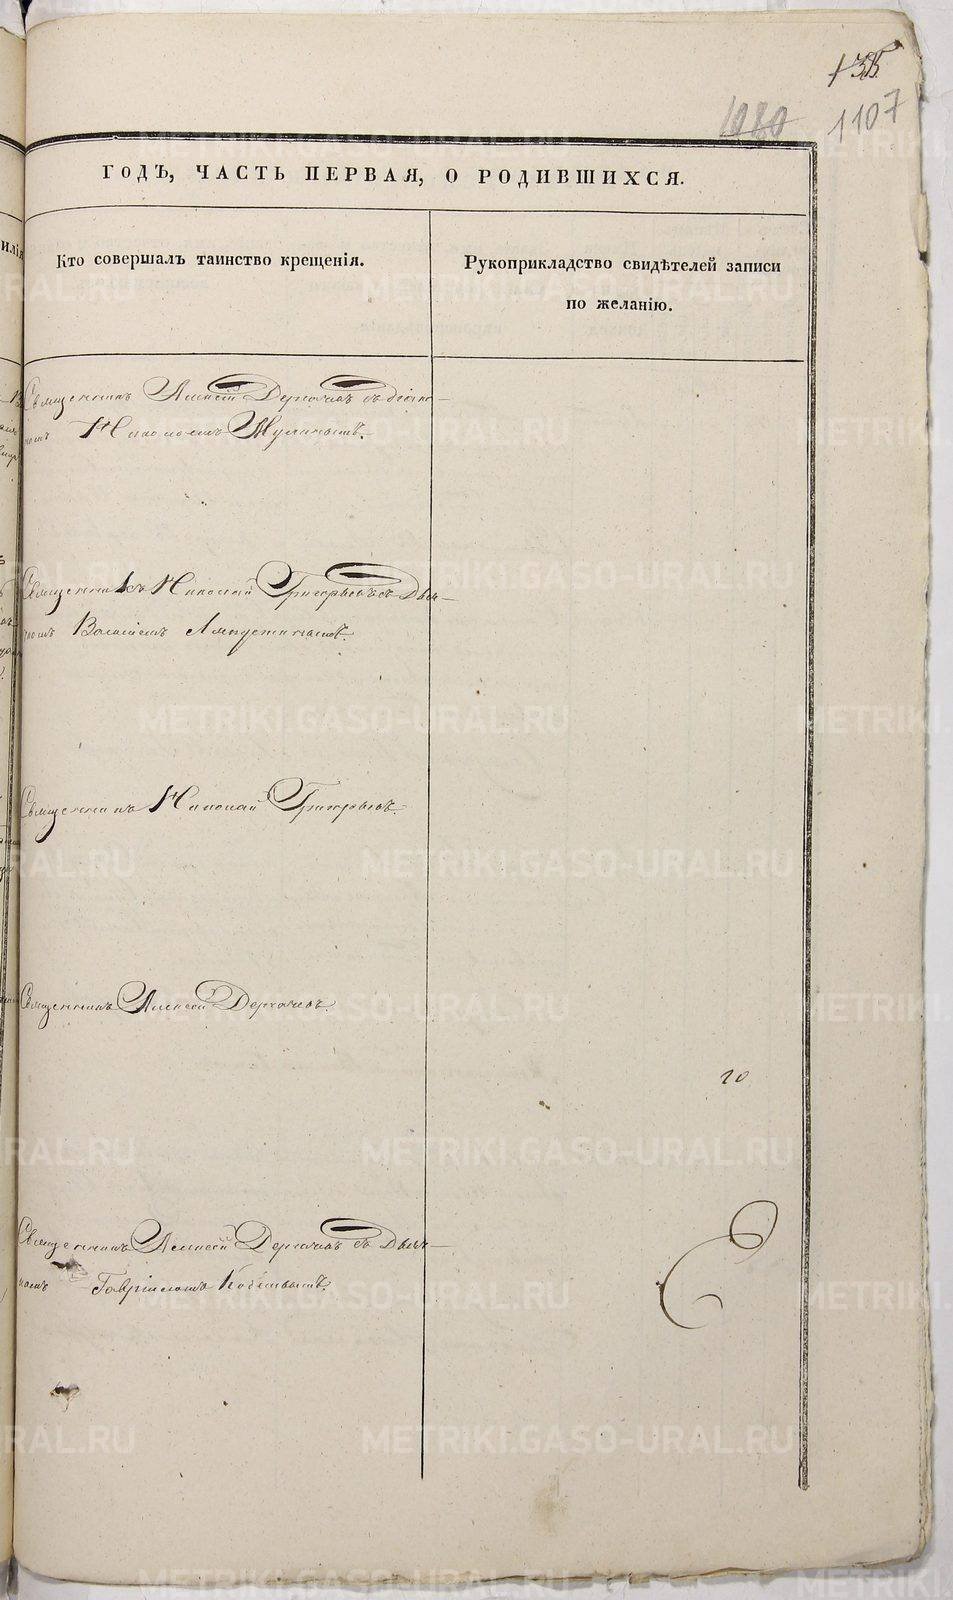 135
1080 1107
ГОДЪ, ЧАСТЬ ПЕРВАЯ, О РОДИВШИХСЯ.
Кто совершалъ таинство крещенія.
Рукоприкладство свидѣтелей записи
по желанію.
Священникъ Алексій Дергачевъ съ діако-
номъ Николаемъ
Священникъ Николай Григорьевъ съ Дьяч-
комъ Василіемъ
Священникъ Николай Григорьевъ.
Священникъ Алексій Дергачевъ.
20
Священникъ Алексій Дергачевъ съ Дьяч-
комъ Гавріиломъ
METRIKI.GASO-URAL.RU